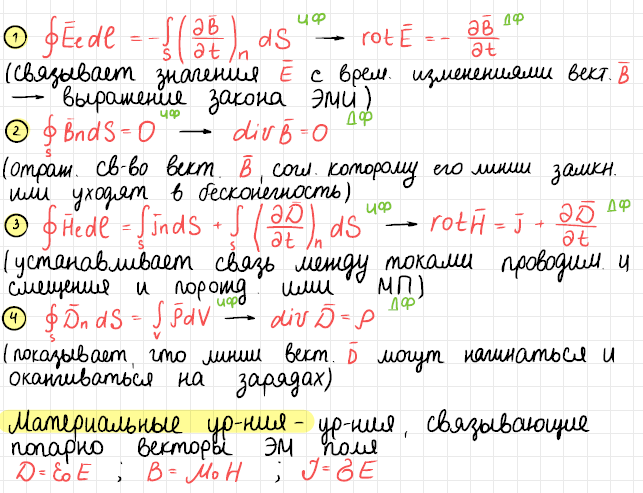 ① ∮ Ē_ℓ dℓ = - ∫_S (∂B̄/∂t)_n dS ИФ → rot Ē = - ∂B̄/∂t ДФ
(связывает значения Ē с врем. изменениями вект. B̄
→ выражение закона ЭМИ)
② ∮_S B̄n dS = 0 ИФ → div B̄ = 0 ДФ
(отраж. св-во вект. B̄, согл. которому его линии замкн.
или уходят в бесконечность)
③ ∮ H̄_ℓ dℓ = ∫_S j̄n dS + ∫_S (∂D̄/∂t)_n dS ИФ → rot H̄ = j̄ + ∂D̄/∂t ДФ
(устанавливает связь между токами проводим. и
смещения и порожд. ими МП)
④ ∮_S D̄n dS = ∫_V ρ̄ dV ИФ → div D̄ = ρ ДФ
(показывает, что линии вект. D̄ могут начинаться и
оканчиваться на зарядах)
Материальные ур-ния - ур-ния, связывающие
попарно векторы ЭМ поля
D = ε₀ E ; B = μ₀ H ; J = σ E